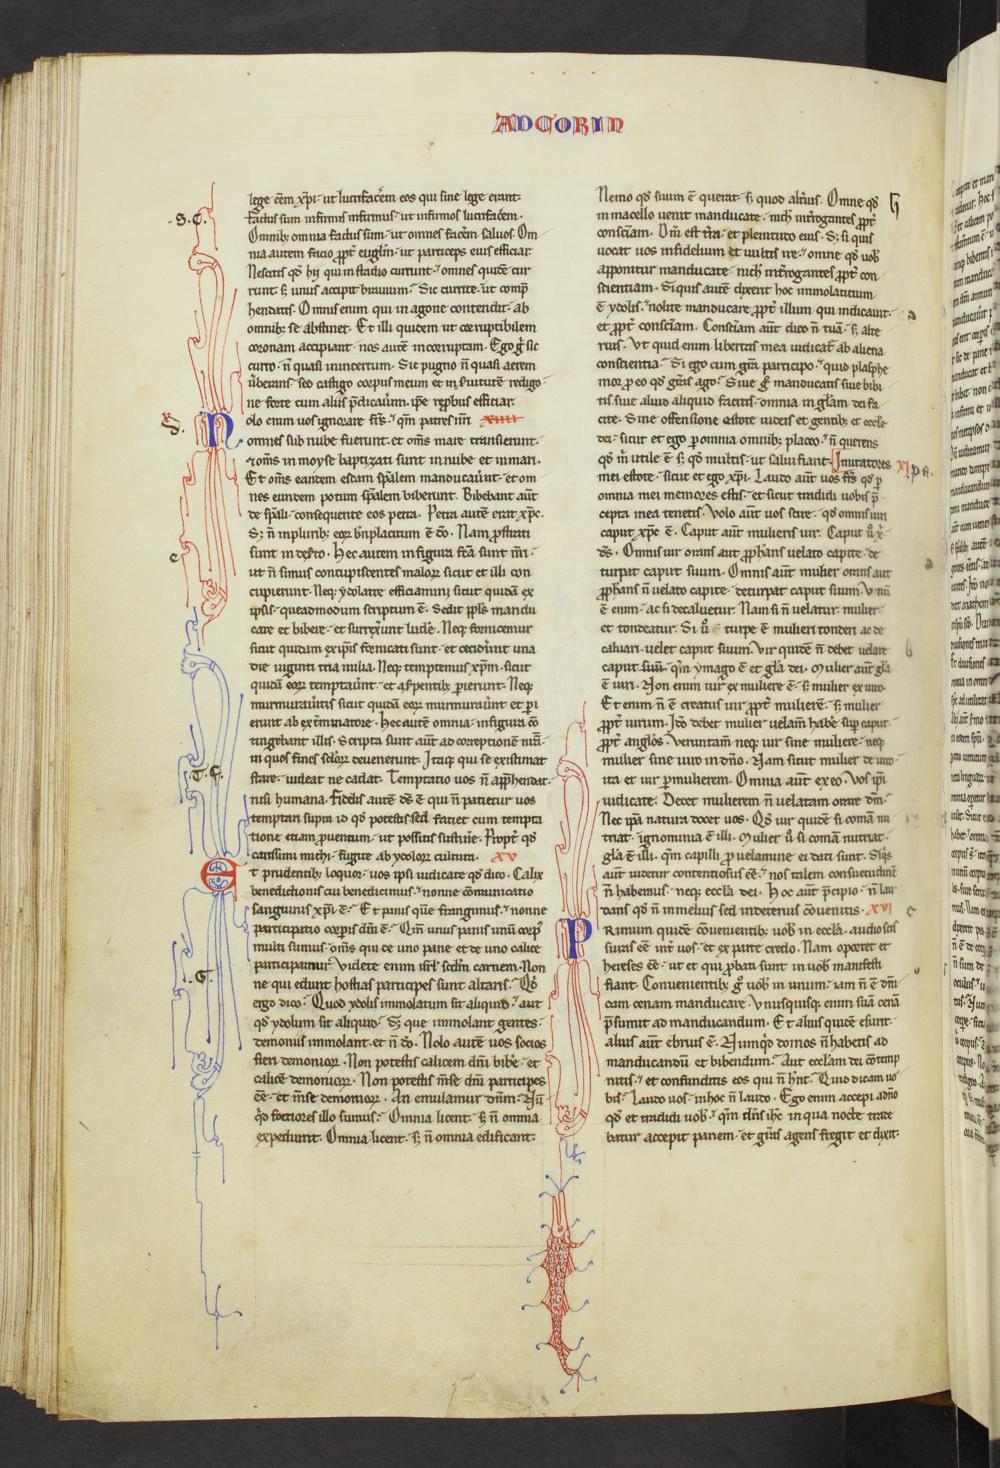 AD CORIN
lege cēm xp̄i· ut lucrifacērem eos qui sine lege erant·
Factus sum infirmis infirmus· ut infirmos lucrifacērem·
Omnib; omnia factus sum· ut omnes facerem saluos. Om
nia autem facio ꝓpt̄ eugl̄m· ut particeps eius efficiar
Nescitis qd̄ hij qui in stadio currunt· omnes quidē cur
runt· s; unus accipit brauium· Sic currite· ut comp̄
hendatis. Omnis enim qui in agone contendit· ab
omnib; se abstinet. Et illi quidem ut corruptibilem
coronam accipiant· nos autē incorruptam. Ego ḡ sic
curro· n̄ quasi in incertum. Sic pugno n̄ quasi aerem
u̇berans· sed castigo corpus meum et in seruitutē redigo·
ne forte cum aliis p̄dicauerim ip̄e reprobus efficiar·
Nolo enim uos ignorare frēs· qm̄ patres nr̄i xiiii
omnes sub nube fuerunt· et om̄s mare transierunt·
⁊ om̄s in moyse baptizati sunt in nube et in mari·
Et om̄s eandem escam sp̄alem manducauerunt· et om
nes eundem potum sp̄alem biberunt. Bibebant aūt
de sp̄ali· consequente eos petra. Petra autē erat xp̄c.
S; n̄ in plurib; eoꝝ bn̄placitum ē dō. Nam ꝓstrati
sunt in deserto· Hec autem in figura fc̄a sunt nr̄i·
ut n̄ simus concupiscentes maloꝝ sicut et illi con
cupierunt. Neq; ydolatre efficiamini sicut quidā ex
ipsis· queadmodum scriptum ē· Sedit ppl̄s mandu
care et bibere· et surrexerunt ludē. Neq; fornicemur
sicut quidam ex ip̄sis fornicati sunt· et ceciderunt una
die uiginti tria milia. Neq; temptemus xp̄m· sicut
quidā eoꝝ temptauerunt· et a serpentib; perierunt. Neq;
murmuraueritis sicut quidā eoꝝ murmurauerunt· et pi
erunt ab exterminatore· Hec autē omnia in figura cō
tingebant illis· Scripta sunt aūt ad correptionē nr̄ā·
in quos fines seculoꝝ deuenerunt. Itaq; qui se existimat
stare· uideat ne cadat. Temptatio uos n̄ app̄hendat·
nisi humana. Fidelis autē ds̄ ē qui n̄ patietur uos
temptari supra id qd̄ potestis· sed faciet cum tempta
tione etiam ꝓuentum· ut possitis sustinē. Propt̄ qd̄
carissimi michi· fugite ab ydoloꝝ cultura· xv
Et prudentib; loquor· uos ipsi iudicate qd̄ dico. Calix
benedictionis cui benedicimus· nonne cōmunicatio
sanguinis xp̄i ē· Et panis quē frangimus· nonne
participatio corꝑis dn̄i ē· Qm̄ unus panis unū corp̄
multi sumus· om̄s qui de uno pane et de uno calice
participamur· Videte enim isrl̄ scd̄m carnem· Non
ne qui edunt hostias participes sunt altaris· Qd̄
ergo dico· Quod ydolis immolatum sit aliquid· aut
qd̄ ydolum sit aliquid· S; que immolant gentes·
demoniis immolant· et n̄ dō. Nolo autē uos socios
fieri demonioꝝ· Non potestis calicem dn̄i bibe· et
calicē demonioꝝ· Non potestis mēse dn̄i participes
eē· et mēse demonioꝝ· An emulamur dn̄m· Nū
qd̄ fortiores illo sumus· Omnia licent· s; n̄ omnia
expediunt· Omnia licent· s; n̄ omnia edificant·
Nemo qd̄ suum ē querat· s; quod alt̄ius. Omne qd̄
in macello uenit manducate· nich̄ interrogantes ꝓpt̄
consciam. Dn̄i est t̄ra· et plenitudo eius. S; si quis
uocat uos infidelium et uultis ire· omne qd̄ uob̄
apponitur manducate· nich̄ interrogantes ꝓpt̄ con
scientiam· Si quis autē dixerit hoc immolaticium
ē ydolis· nolite manducare ꝓpt̄ illum qui indicauit·
et ꝓpt̄ consciam. Consciam aūt dico n̄ tuā· s; alte
rius. Ut quid enim libertas mea iudicat̄ ab aliena
conscientia· Si ego cum gr̄a participo· quid blasphe
mor ꝓ eo qd̄ gr̄as ago· Siue ḡ manducatis siue bibi
tis siue aliud aliquid facitis· omnia in glam̄ dei fa
cite· Sine offensione estote iudeis et gentib; et eccle
dei· sicut et ego ꝑ omnia omnib; placeo· n̄ querens
qd̄ m̄ utile ē s; qd̄ multis· ut salui fiant. Imitatores xi
mei estote· sicut et ego xp̄i. Laudo aūt uos frēs qd̄ ꝑ
omnia mei memores estis· et sicut tradidi uobis p̄
cepta mea tenetis. Volo aūt uos scire· qd̄ omnis uiri
caput xp̄c ē. Caput aūt mulieris uir. Caput ū x̄·
ds̄· Omnis uir orans aut ꝓphans uelato capite· de
turpat caput suum. Omnis aūt mulier orans aut
ꝓphans n̄ uelato capite· deturpat caput suum. Vnū
ē enim· ac si decaluetur. Nam si n̄ uelatur mulier·
et tondeatur. Si ū turpe ē mulieri tonderi ac de
caluari· uelet caput suum. Vir quidē n̄ debet uelare
caput suū· qm̄ ymago ē et gla dei. Mulier aūt gla
ē uiri. Non enim uir ex muliere ē· s; mulier ex uiro·
Et enim n̄ ē creatus uir ꝓpt̄ mulierē· s; mulier
ꝓpt̄ uirum. Ido debet mulier uelam̄ habē sup caput·
ꝓpt̄ anglos· Verumtam̄ neq; uir sine muliere· neq;
mulier sine uiro in dn̄o. Nam sicut mulier de uiro·
ita et uir ꝑ mulierem. Omnia aūt ex eo. Vos ip̄i
iudicate· Decet mulierem n̄ uelatam orare dm̄·
Nec ip̄a natura docet uos· Qd̄ uir quidē si comā nu
triat· ignominia ē illi· Mulier ū si comā nutriat·
gl̄a ē illi· qm̄ capilli ꝓ uelamine ei dati sunt. Siq̄s
aūt uidetur contentiosus eē· nos talem consuetudinē
n̄ habemus· neq; eccl̄a dei· Hoc aūt p̄cipio· n̄ lau
dans qd̄ n̄ in melius sed in deterius cōuenitis· xvi
Primum quidē cōuenientib; uob̄ in eccl̄a· audio scis
suras eē int̄ uos· et ex parte credo. Nam oportet et
hereses eē· ut et qui ꝓbati sunt in uob̄ manifesti
fiant· Conuenientib; ḡ uob̄ in unum· iam n̄ ē dn̄i
cam cenam manducare· Vnusquisq; enim suā cenā
p̄sumit ad manducandum· Et alius quidē esurit·
alius aūt ebrius ē· Nunqd̄ domos n̄ habetis ad
manducandū et bibendum· Aut eccl̄am dei cōtemp
nitis· et confunditis eos qui n̄ hn̄t· Quid dicam uo
bis· Laudo uos· in hoc n̄ laudo· Ego enim accepi a dn̄o
qd̄ et tradidi uob̄· qm̄ dn̄s ih̄c in qua nocte trade
batur accepit panem· et gr̄as agens fregit et dixit·